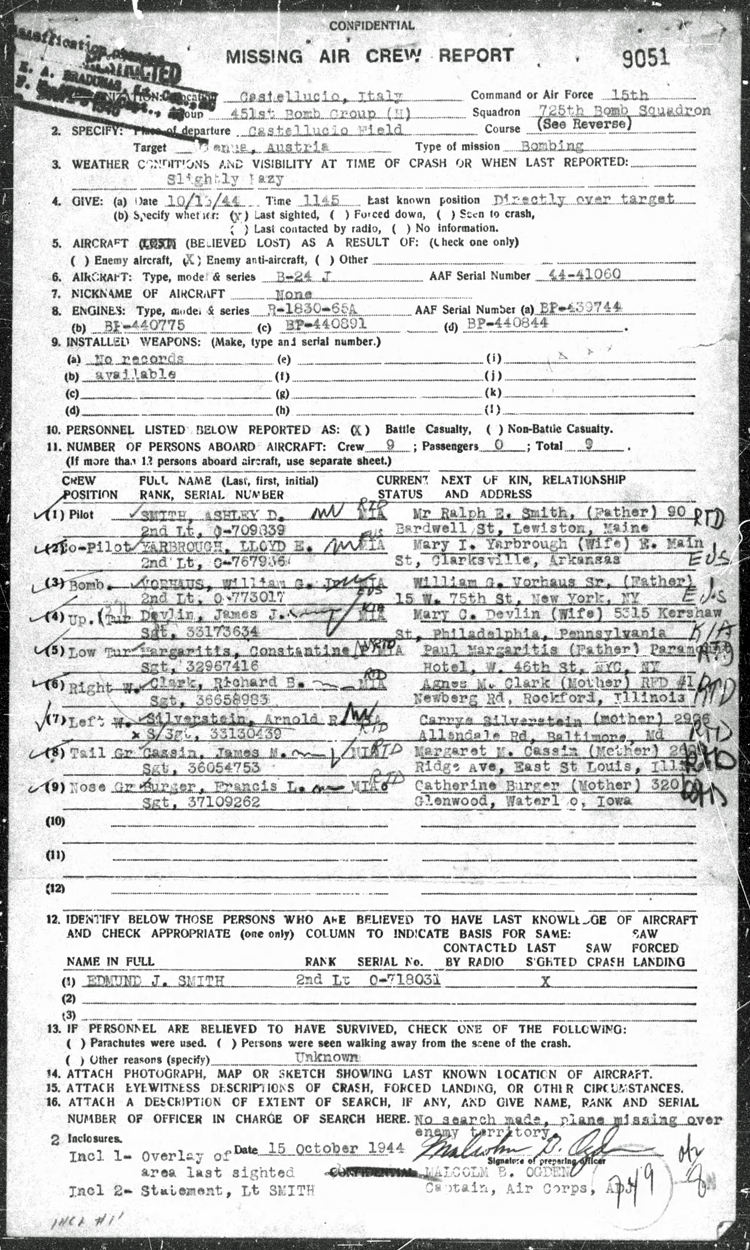 CONFIDENTIAL
MISSING AIR CREW REPORT 9051
Castellucio, Italy Command or Air Force 15th
451st Bomb Group (H) Squadron 725th Bomb Squadron
2. SPECIFY: Place of departure Castellucio Field Course (See Reverse)
Target Austria Type of mission Bombing
3. WEATHER CONDITIONS AND VISIBILITY AT TIME OF CRASH OR WHEN LAST REPORTED:
Slightly hazy
4. GIVE: (a) Date 10/13/44 Time 1145 Last known position Directly over target
(b) Specify whether: (x) Last sighted, ( ) Forced down, ( ) Seen to crash,
( ) Last contacted by radio, ( ) No information.
5. AIRCRAFT (LOST) (BELIEVED LOST) AS A RESULT OF: (Check one only)
( ) Enemy aircraft, (X) Enemy anti-aircraft, ( ) Other
6. AIRCRAFT: Type, model & series B-24 J AAF Serial Number 44-41060
7. NICKNAME OF AIRCRAFT None
8. ENGINES: Type, model & series R-1830-65A AAF Serial Number (a) BP-439744
(b) BP-440775 (c) BP-440891 (d) BP-440844 .
9. INSTALLED WEAPONS: (Make, type and serial number.)
(a) No records (e) (i)
(b) available (f) (j)
(c) (g) (k)
(d) (h) (l)
10. PERSONNEL LISTED BELOW REPORTED AS: (X) Battle Casualty, ( ) Non-Battle Casualty.
11. NUMBER OF PERSONS ABOARD AIRCRAFT: Crew 9 ; Passengers 0 ; Total 9 .
(If more than 12 persons aboard aircraft, use separate sheet.)
CREW FULL NAME (Last, first, initial) CURRENT NEXT OF KIN, RELATIONSHIP
POSITION RANK, SERIAL NUMBER STATUS AND ADDRESS
(1) Pilot SMITH, ASHLEY D. MIA RTD Mr Ralph E. Smith, (Father) 90 RTD
2nd Lt, O-709839 Bardwell St, Lewiston, Maine
(2) Co-Pilot YARBROUGH, LLOYD E. MIA EUS Mary I. Yarbrough (Wife) E. Main
2nd Lt, O-767936 St, Clarksville, Arkansas EUS
(3) Bomb. VORHAUS, William G. Jr MIA William G. Vorhaus Sr, (Father)
2nd Lt, O-773017 EUS 15 W. 75th St, New York, NY EUS
(4) Up. Tur Devlin, James J. MIA KIA Mary C. Devlin (Wife) 5315 Kershaw
Sgt, 33173634 St, Philadelphia, Pennsylvania KIA
(5) Low Tur Margaritis, Constantine P MIA RTD Paul Margaritis (Father) Paramount
Sgt, 32967416 Hotel, W. 46th St, NYC, NY RTD
(6) Right W. Clark, Richard B. MIA RTD Agnes M. Clark (Mother) RFD #1
Sgt, 36658983 Newberg Rd, Rockford, Illinois RTD
(7) Left W. Silverstein, Arnold R. MIA Carrye Silverstein (mother) 2926
x S/Sgt, 33130439 RTD Allendale Rd, Baltimore, Md RTD
(8) Tail Gr Cassin, James M. MIA RTD Margaret M. Cassin (Mother)
Sgt, 36054753 Ridge Ave, East St Louis, Ill RTD
(9) Nose Gr Burger, Francis L. MIA RTD Catherine Burger (Mother) 320
Sgt, 37109262 Glenwood, Waterloo, Iowa RTD
(10)
(11)
(12)
12. IDENTIFY BELOW THOSE PERSONS WHO ARE BELIEVED TO HAVE LAST KNOWLEDGE OF AIRCRAFT
AND CHECK APPROPRIATE (one only) COLUMN TO INDICATE BASIS FOR SAME: SAW
CONTACTED LAST SAW FORCED
NAME IN FULL RANK SERIAL No. BY RADIO SIGHTED CRASH LANDING
(1) EDMUND J. SMITH 2nd Lt O-718031 X
(2)
(3)
13. IF PERSONNEL ARE BELIEVED TO HAVE SURVIVED, CHECK ONE OF THE FOLLOWING:
( ) Parachutes were used. ( ) Persons were seen walking away from the scene of the crash.
( ) Other reasons (specify) Unknown
14. ATTACH PHOTOGRAPH, MAP OR SKETCH SHOWING LAST KNOWN LOCATION OF AIRCRAFT.
15. ATTACH EYEWITNESS DESCRIPTIONS OF CRASH, FORCED LANDING, OR OTHER CIRCUMSTANCES.
16. ATTACH A DESCRIPTION OF EXTENT OF SEARCH, IF ANY, AND GIVE NAME, RANK AND SERIAL
NUMBER OF OFFICER IN CHARGE OF SEARCH HERE. No search made, plane missing over
enemy territory
2 Inclosures. Date 15 October 1944 Malcolm B. Ogden
Incl 1- Overlay of Signature of preparing officer
area last sighted CONFIDENTIAL MALCOLM B. OGDEN
Incl 2- Statement, Lt SMITH Captain, Air Corps, Adj
INCL #1